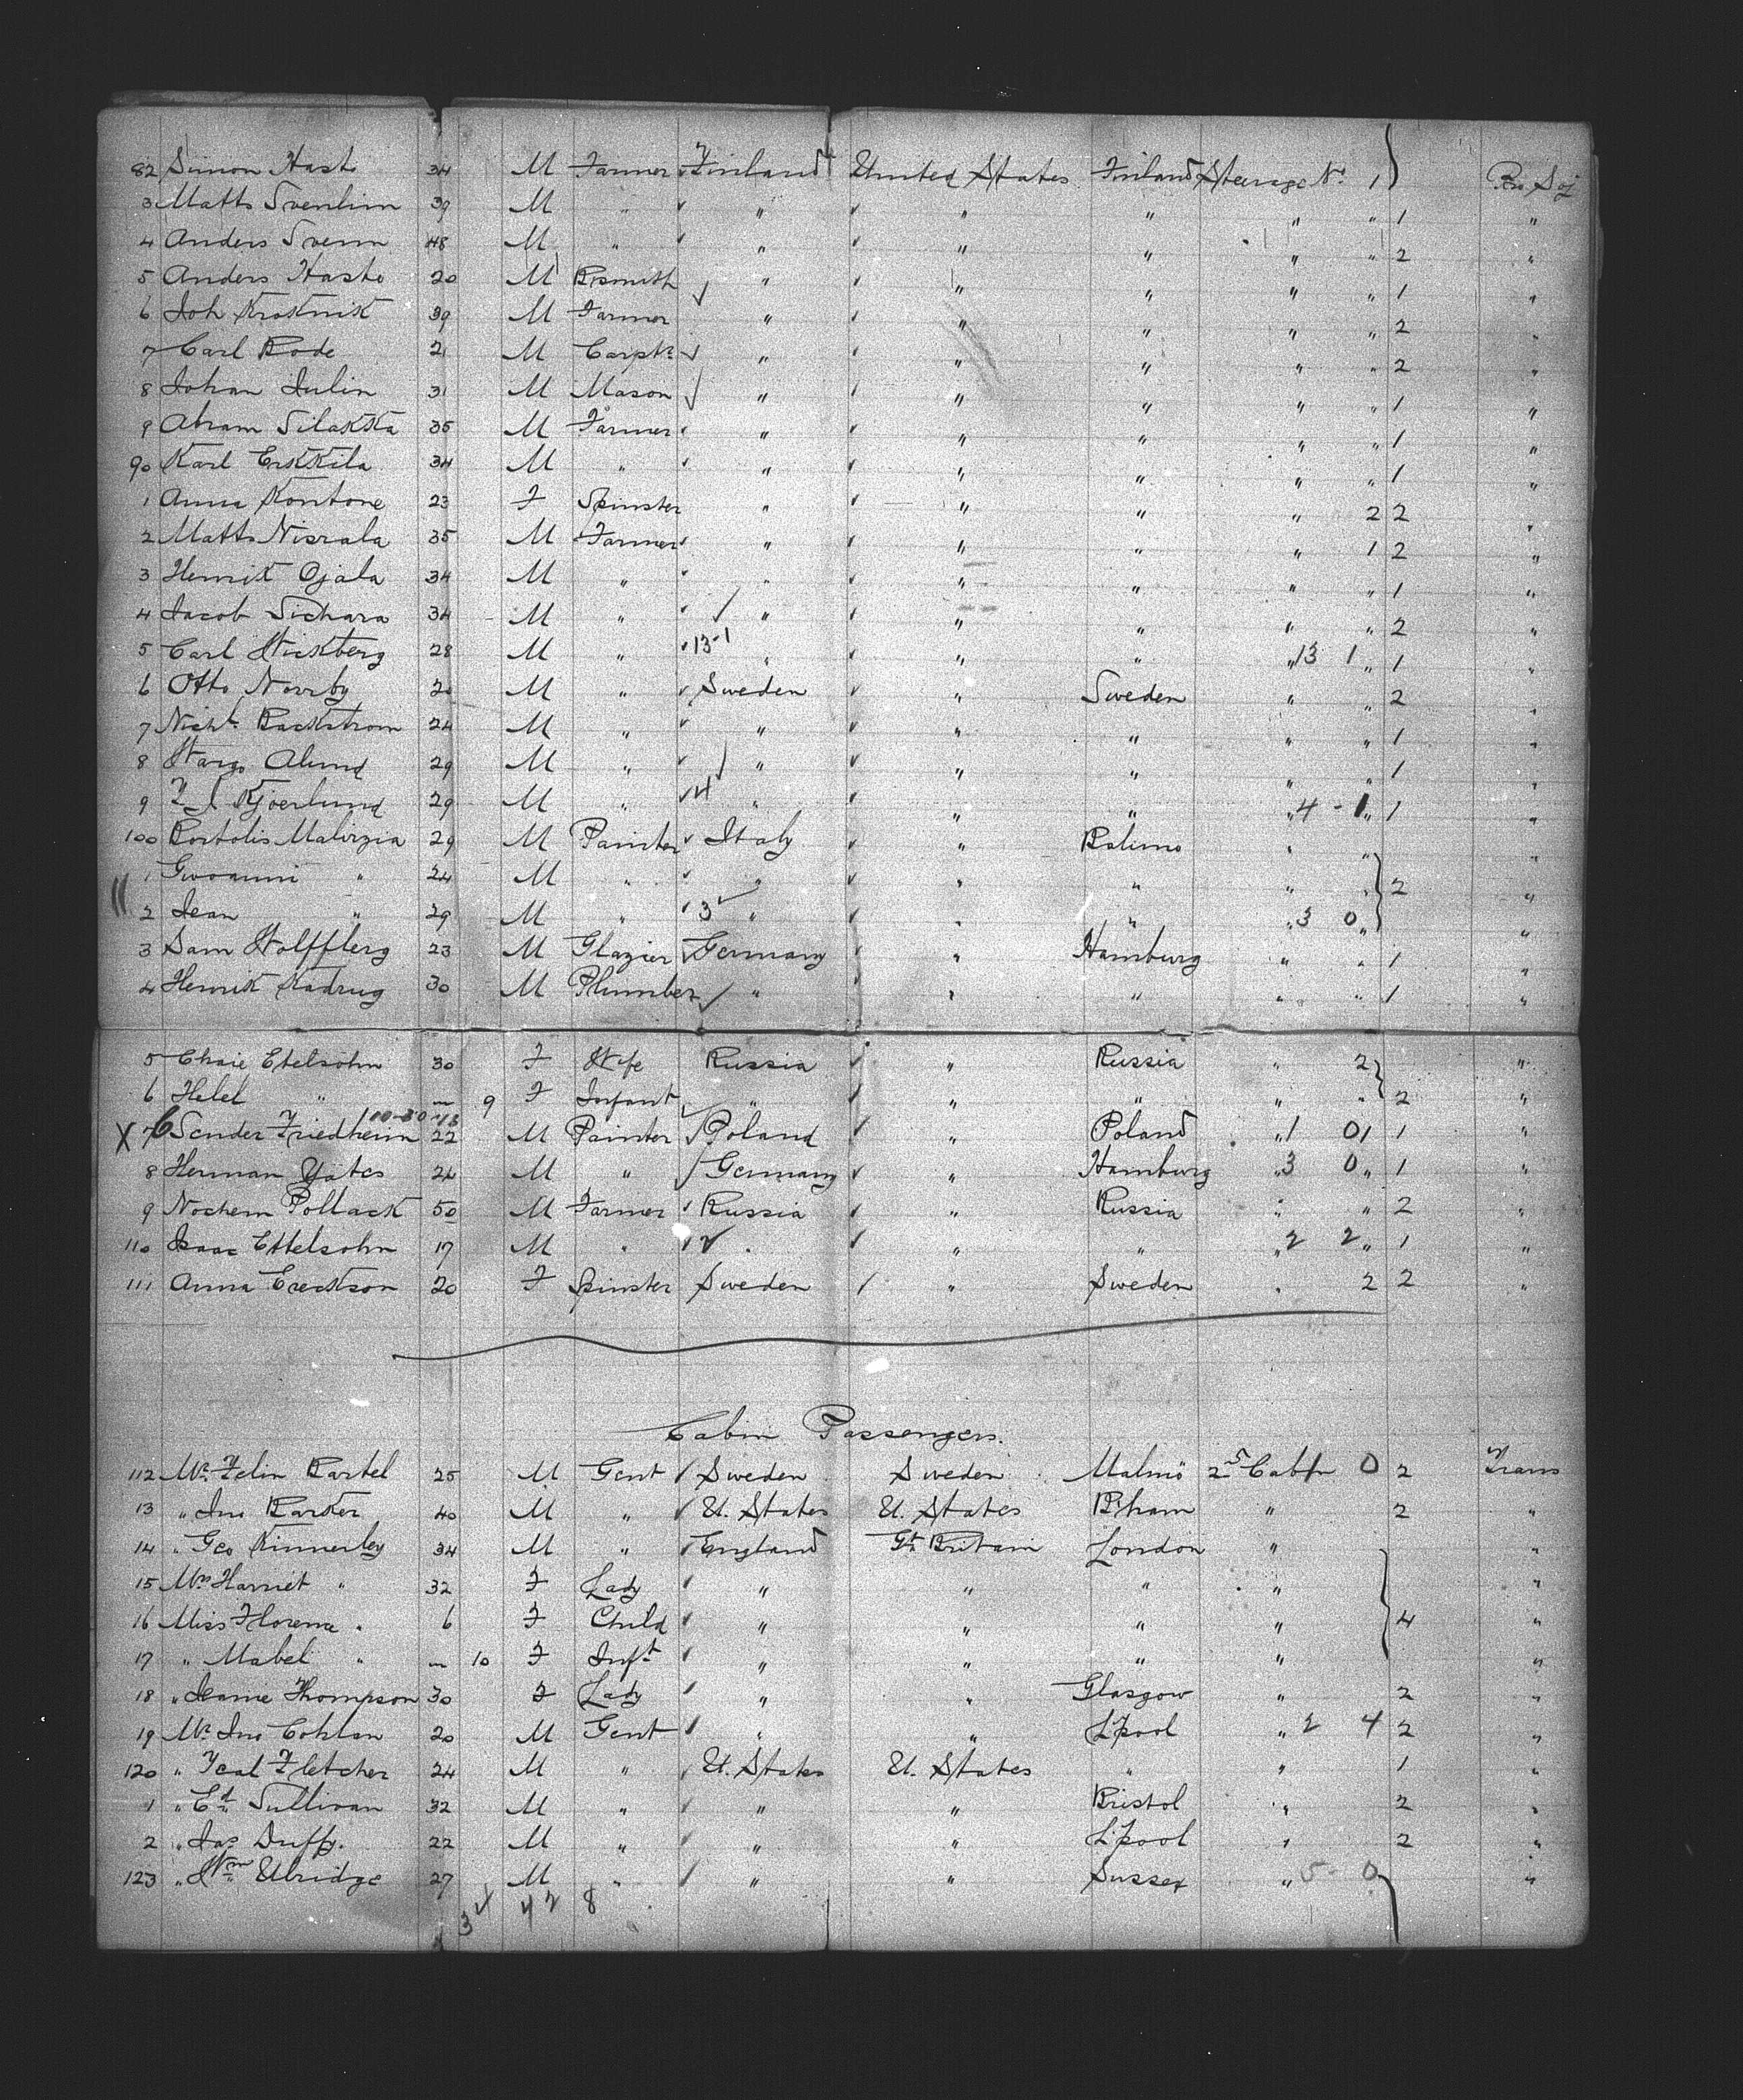 82 Simon Hast 34 M Farmer Finland United States Finland Steerage No 1 Pro Soj
3 Matts Svenlin 39 M " " " " " " 1 "
4 Anders Svenn 48 M " " " " " " 2 "
5 Anders Hasto 20 M Bsmith " " " " " 1 "
6 Joh Kroknik 39 M Farmer " " " " " 2 "
7 Carl Bode 21 M Carptr " " " " " 2 "
8 Johan Julin 31 M Mason " " " " " 1 "
9 Abram Silakka 35 M Farmer " " " " " 1 "
90 Karl Erkkila 34 M " " " " " " 1 "
1 Anna Kontone 23 F Spinster " " " " 2 2 "
2 Matts Nisrala 35 M Farmer " " " " 1 2 "
3 Henrik Ojala 34 M " " " " " " 1 "
4 Jacob Sichara 34 M " " " " " " 2 "
5 Carl Wickberg 28 M " 13-1 " " " " 13 1 " 1 "
6 Otto Norrby 20 M " Sweden " Sweden " " 2 "
7 Nich. Backstrom 24 M " " " " " " 1 "
8 Alund 29 M " " " " " " 1 "
9 Kjoerlund 29 M " 4 " " " " 4 - 1 " 1 "
100 Bortolis Malirzia 29 M Painter Italy " Palimo " " "
1 Gwoanni " 24 M " " " " " " 2 "
2 Jean " 29 M " 3 " " " " 3 0 " "
3 Sam Wolffberg 23 M Glazier Germany " Hamburg " " 1 "
4 Henrik Kadrug 30 M Plumber " " " " " 1 "
5 Chaie Etelsohn 30 F Wife Russia " Russia " 2 "
6 Hebel " 9 F Infant " " " " " 2 "
7 6 Sender Friedheim 22 M Painter Poland " Poland " 1 01 1 "
8 Herman Yates 24 M " Germany " Hamburg " 3 0 " 1 "
9 Nochem Pollack 50 M Farmer Russia " Russia " " 2 "
110 Isaac Ettelsohn 17 M " 2 " " " " 2 2 " 1 "
111 Anna Erecktson 20 F Spinster Sweden " Sweden " 2 2 "
Cabin Passengers.
112 Mr. Felin Bartel 25 M Gent Sweden Sweden Malmö 2 5 Cabin 0 2 Trans
13 " Jno Barker 40 M " U. States U. States B'ham " 2 "
14 " Geo Kinnerley 34 M " England Gt Britain London " "
15 Mrs Harriet " 32 F Lady " " " " "
16 Miss Florence " 6 F Child " " " " 4 "
17 " Mabel " 10 F Inft " " " " "
18 " Jeanie Thompson 30 F Lady " " Glasgow " 2 "
19 Mr. Jno Cohlan 20 M Gent " " L'pool " 2 4 2 "
120 " Fletcher 24 M " U. States U. States " " 1 "
1 " Ed Sullivan 32 M " " " Bristol " 2 "
2 " Jas Duffy. 22 M " " " L'pool " 2 "
123 " Wm Elbridge 27 M " " " Sussex " 5 - 0 "
3 4 4 2 8